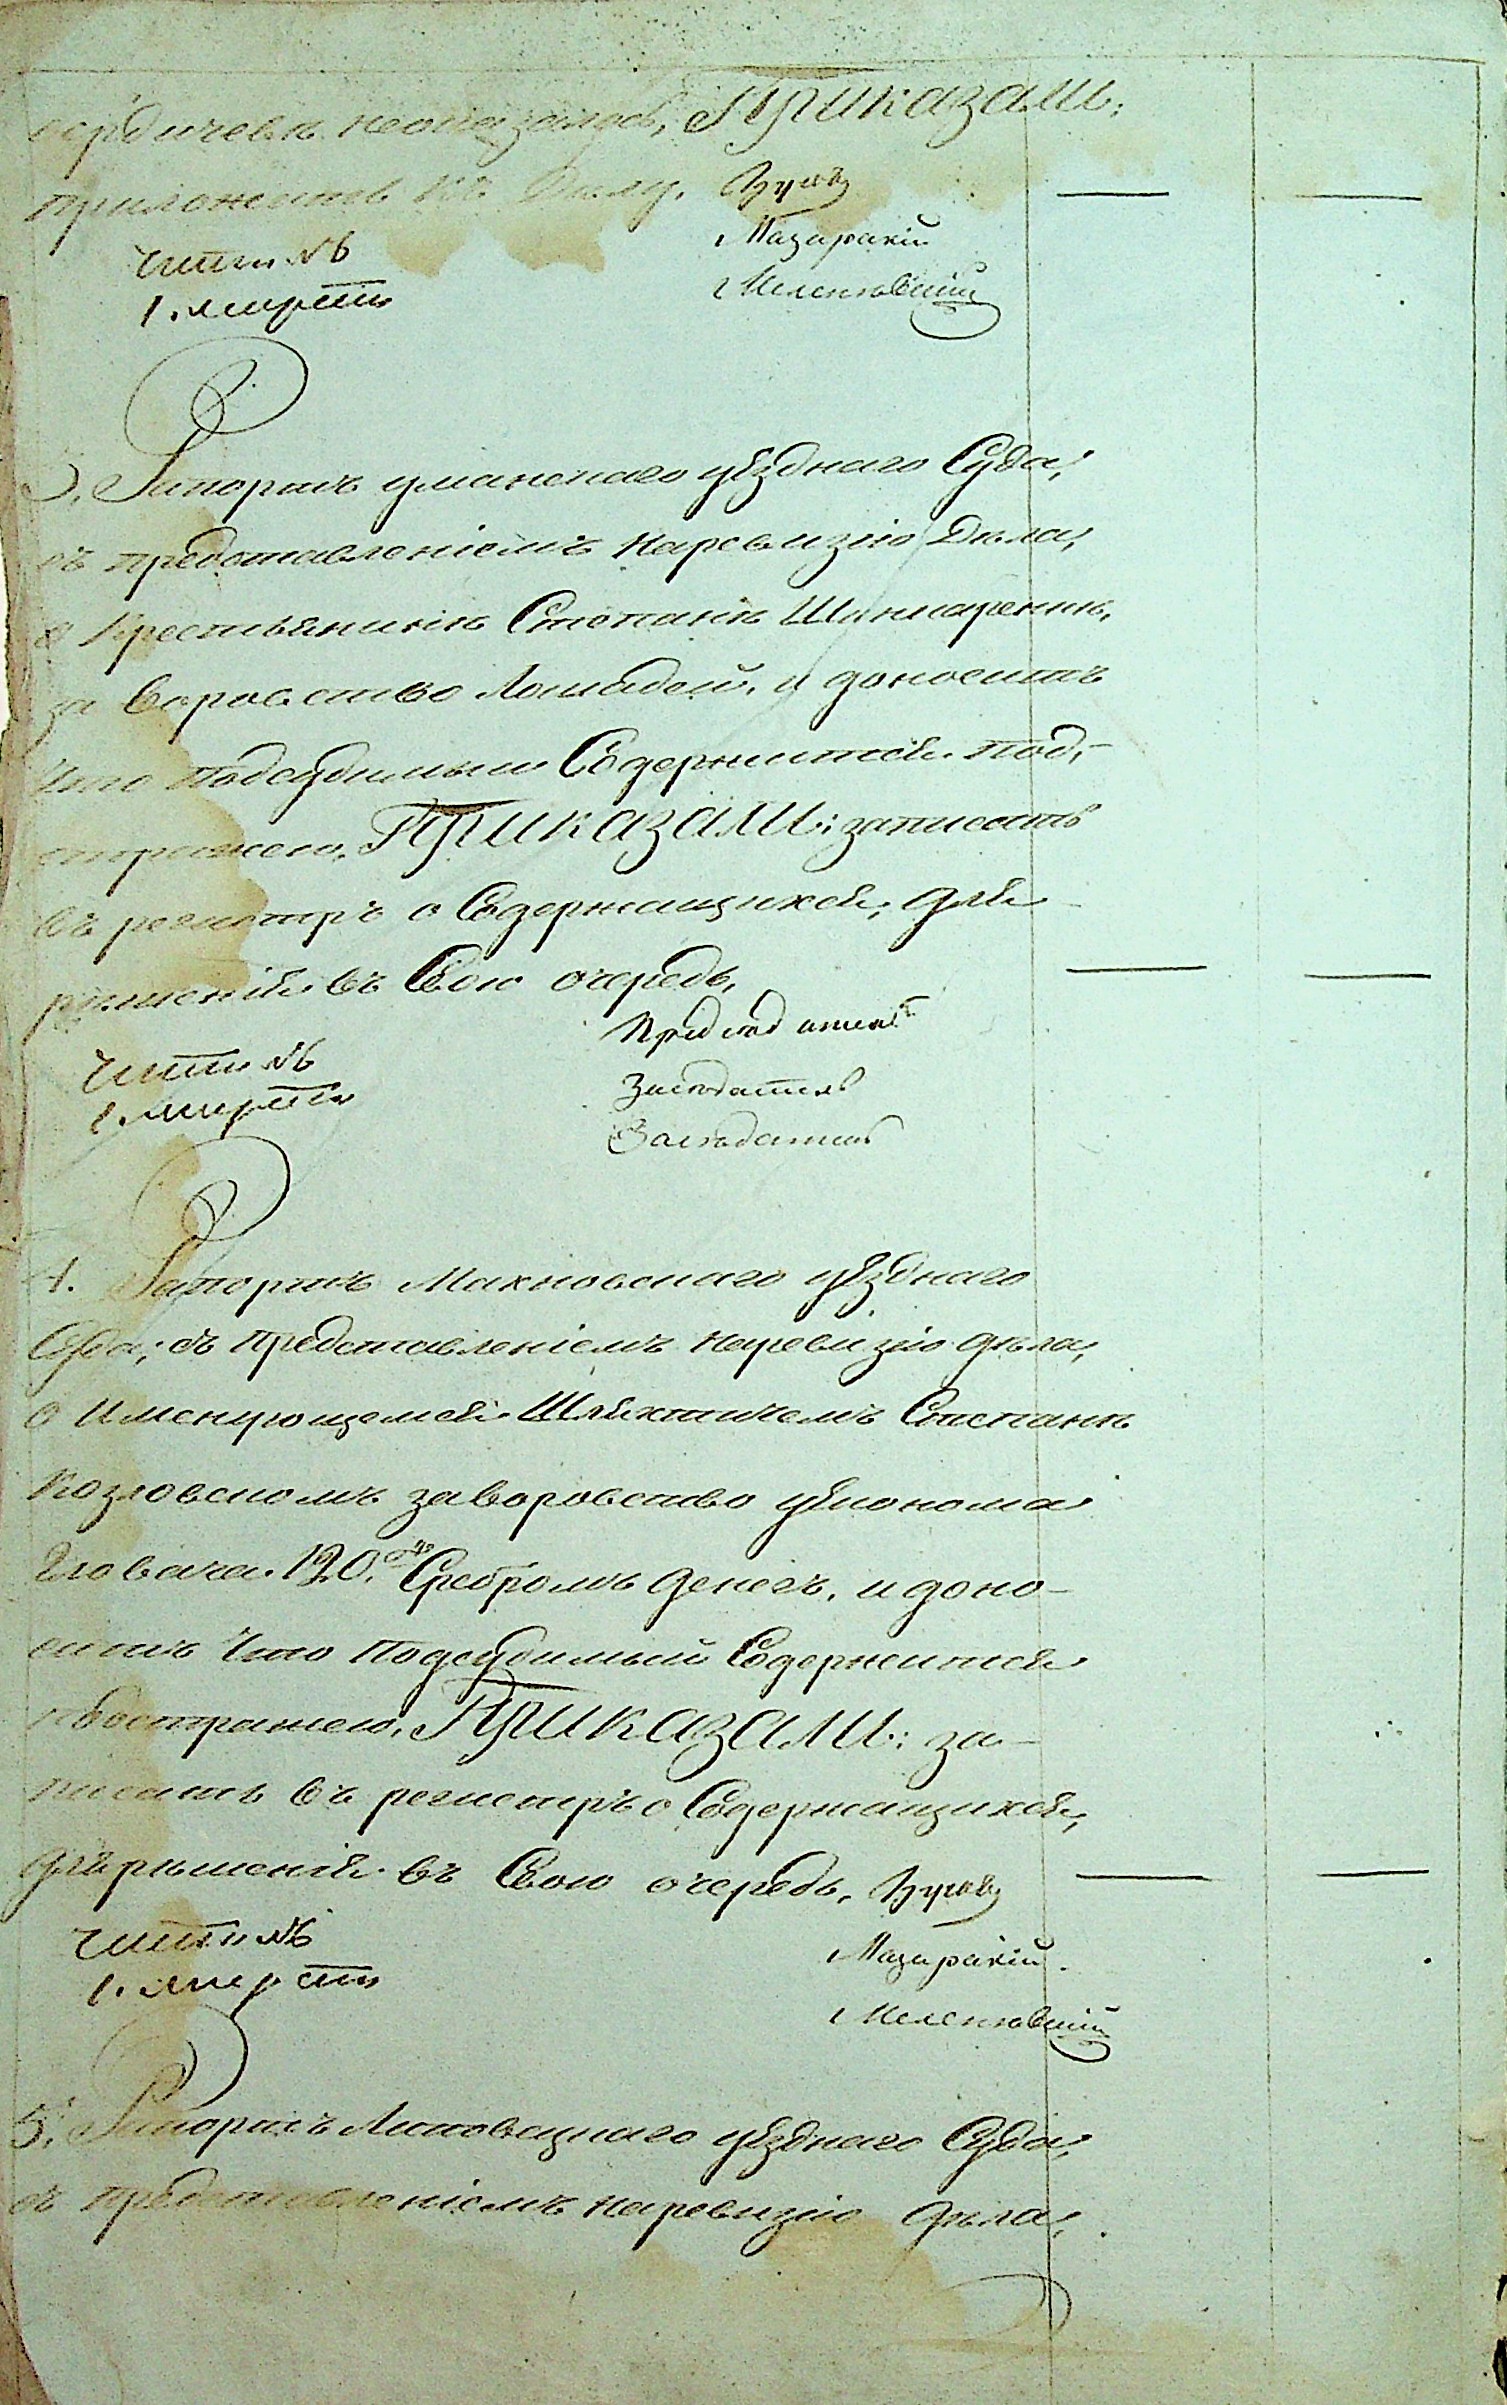 неоказалось, Приказали:
приложить къ Делу.
Мазаракій
1. марта
3, Рапортъ уманскаго уѣзднаго Суда,
съ представленіемъ наревизію Дѣла,
о Крестьянинѣ Степанѣ
за воровство лошадей, и доноситъ
что подсудимый Содержится под,-
стражею, Приказали: записать
въ регистръ о Содержащихся, для
решенія въ Свою очередь,
Председатель
Заседатель
Заседатель
1. марта
4. Рапортъ Махновскаго уѣзднаго
Суда, съ представленіемъ наревизію дѣла,
о Именующемся Шляхтичемъ Степанѣ
Козловскомъ заворовство уЕконома
120. Сребромъ денегъ, и доно-
ситъ что подсудимый Содержится
подстражею, Приказали: за-
писать въ регистръ о Содержащихся,
для решенія въ Свою очередь,
Мазаракій
1. марта
5, Рапортъ Липовецкаго уѣзднаго Суда,
съ представленіемъ наревизію дѣла,